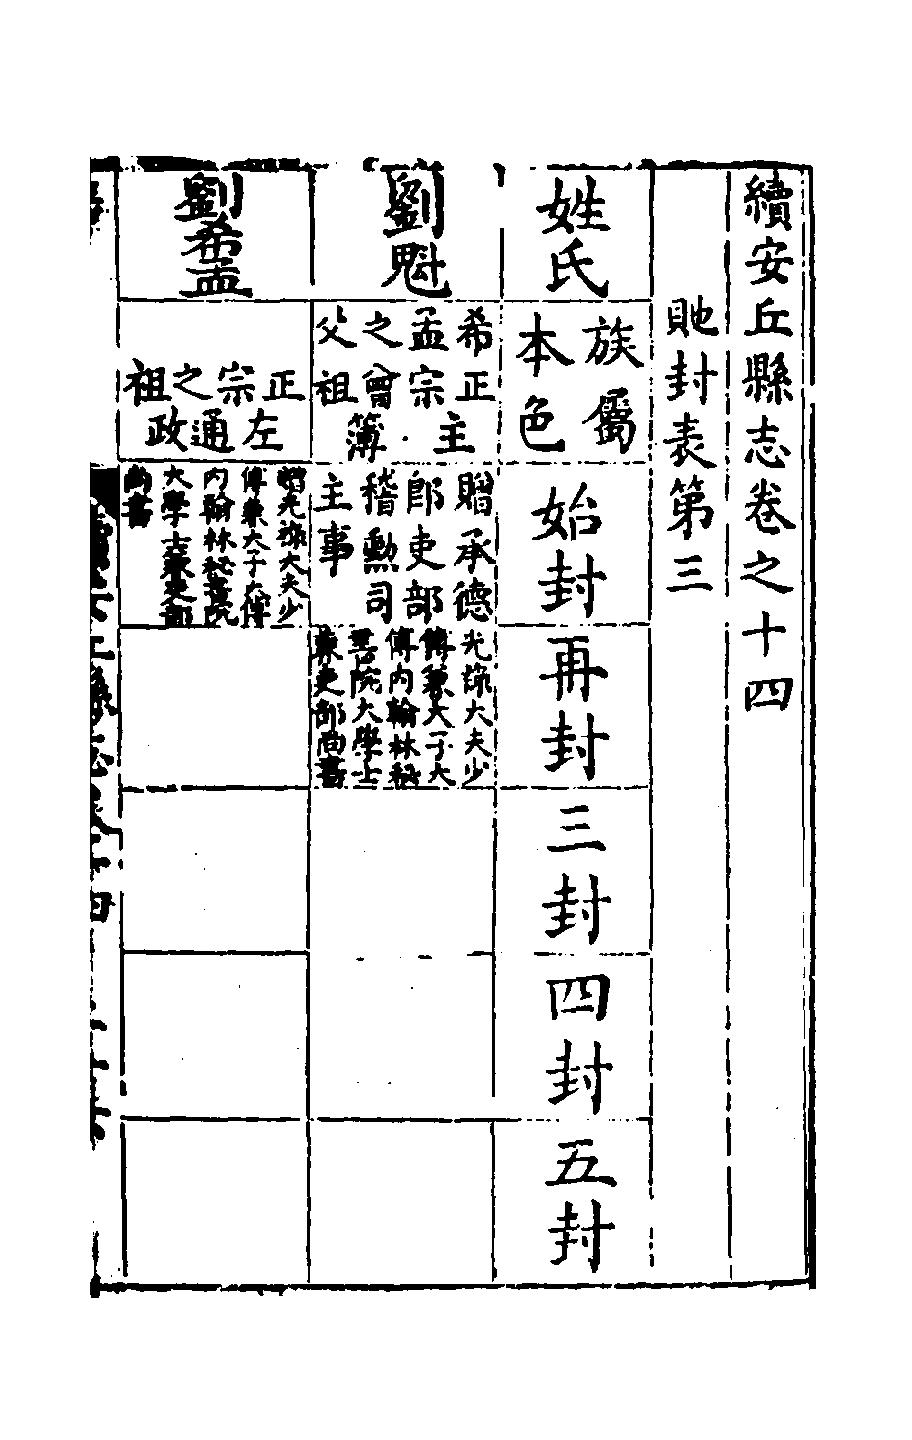 續安丘縣志卷之十四
貤封表第三
姓氏
族屬
本色
始封
再封
三封
四封
五封
劉魁
希孟之父
正宗曾祖
主簿
贈承德
郎吏部
稽勳司
主事
光祿大夫少
傅兼太子太
傅內翰林秘
書院大學士
兼吏部尚書
劉希孟
正宗之祖
左通政
贈光祿大夫少
傅兼太子太傅
內翰林秘書院
大學士兼吏部
尚書